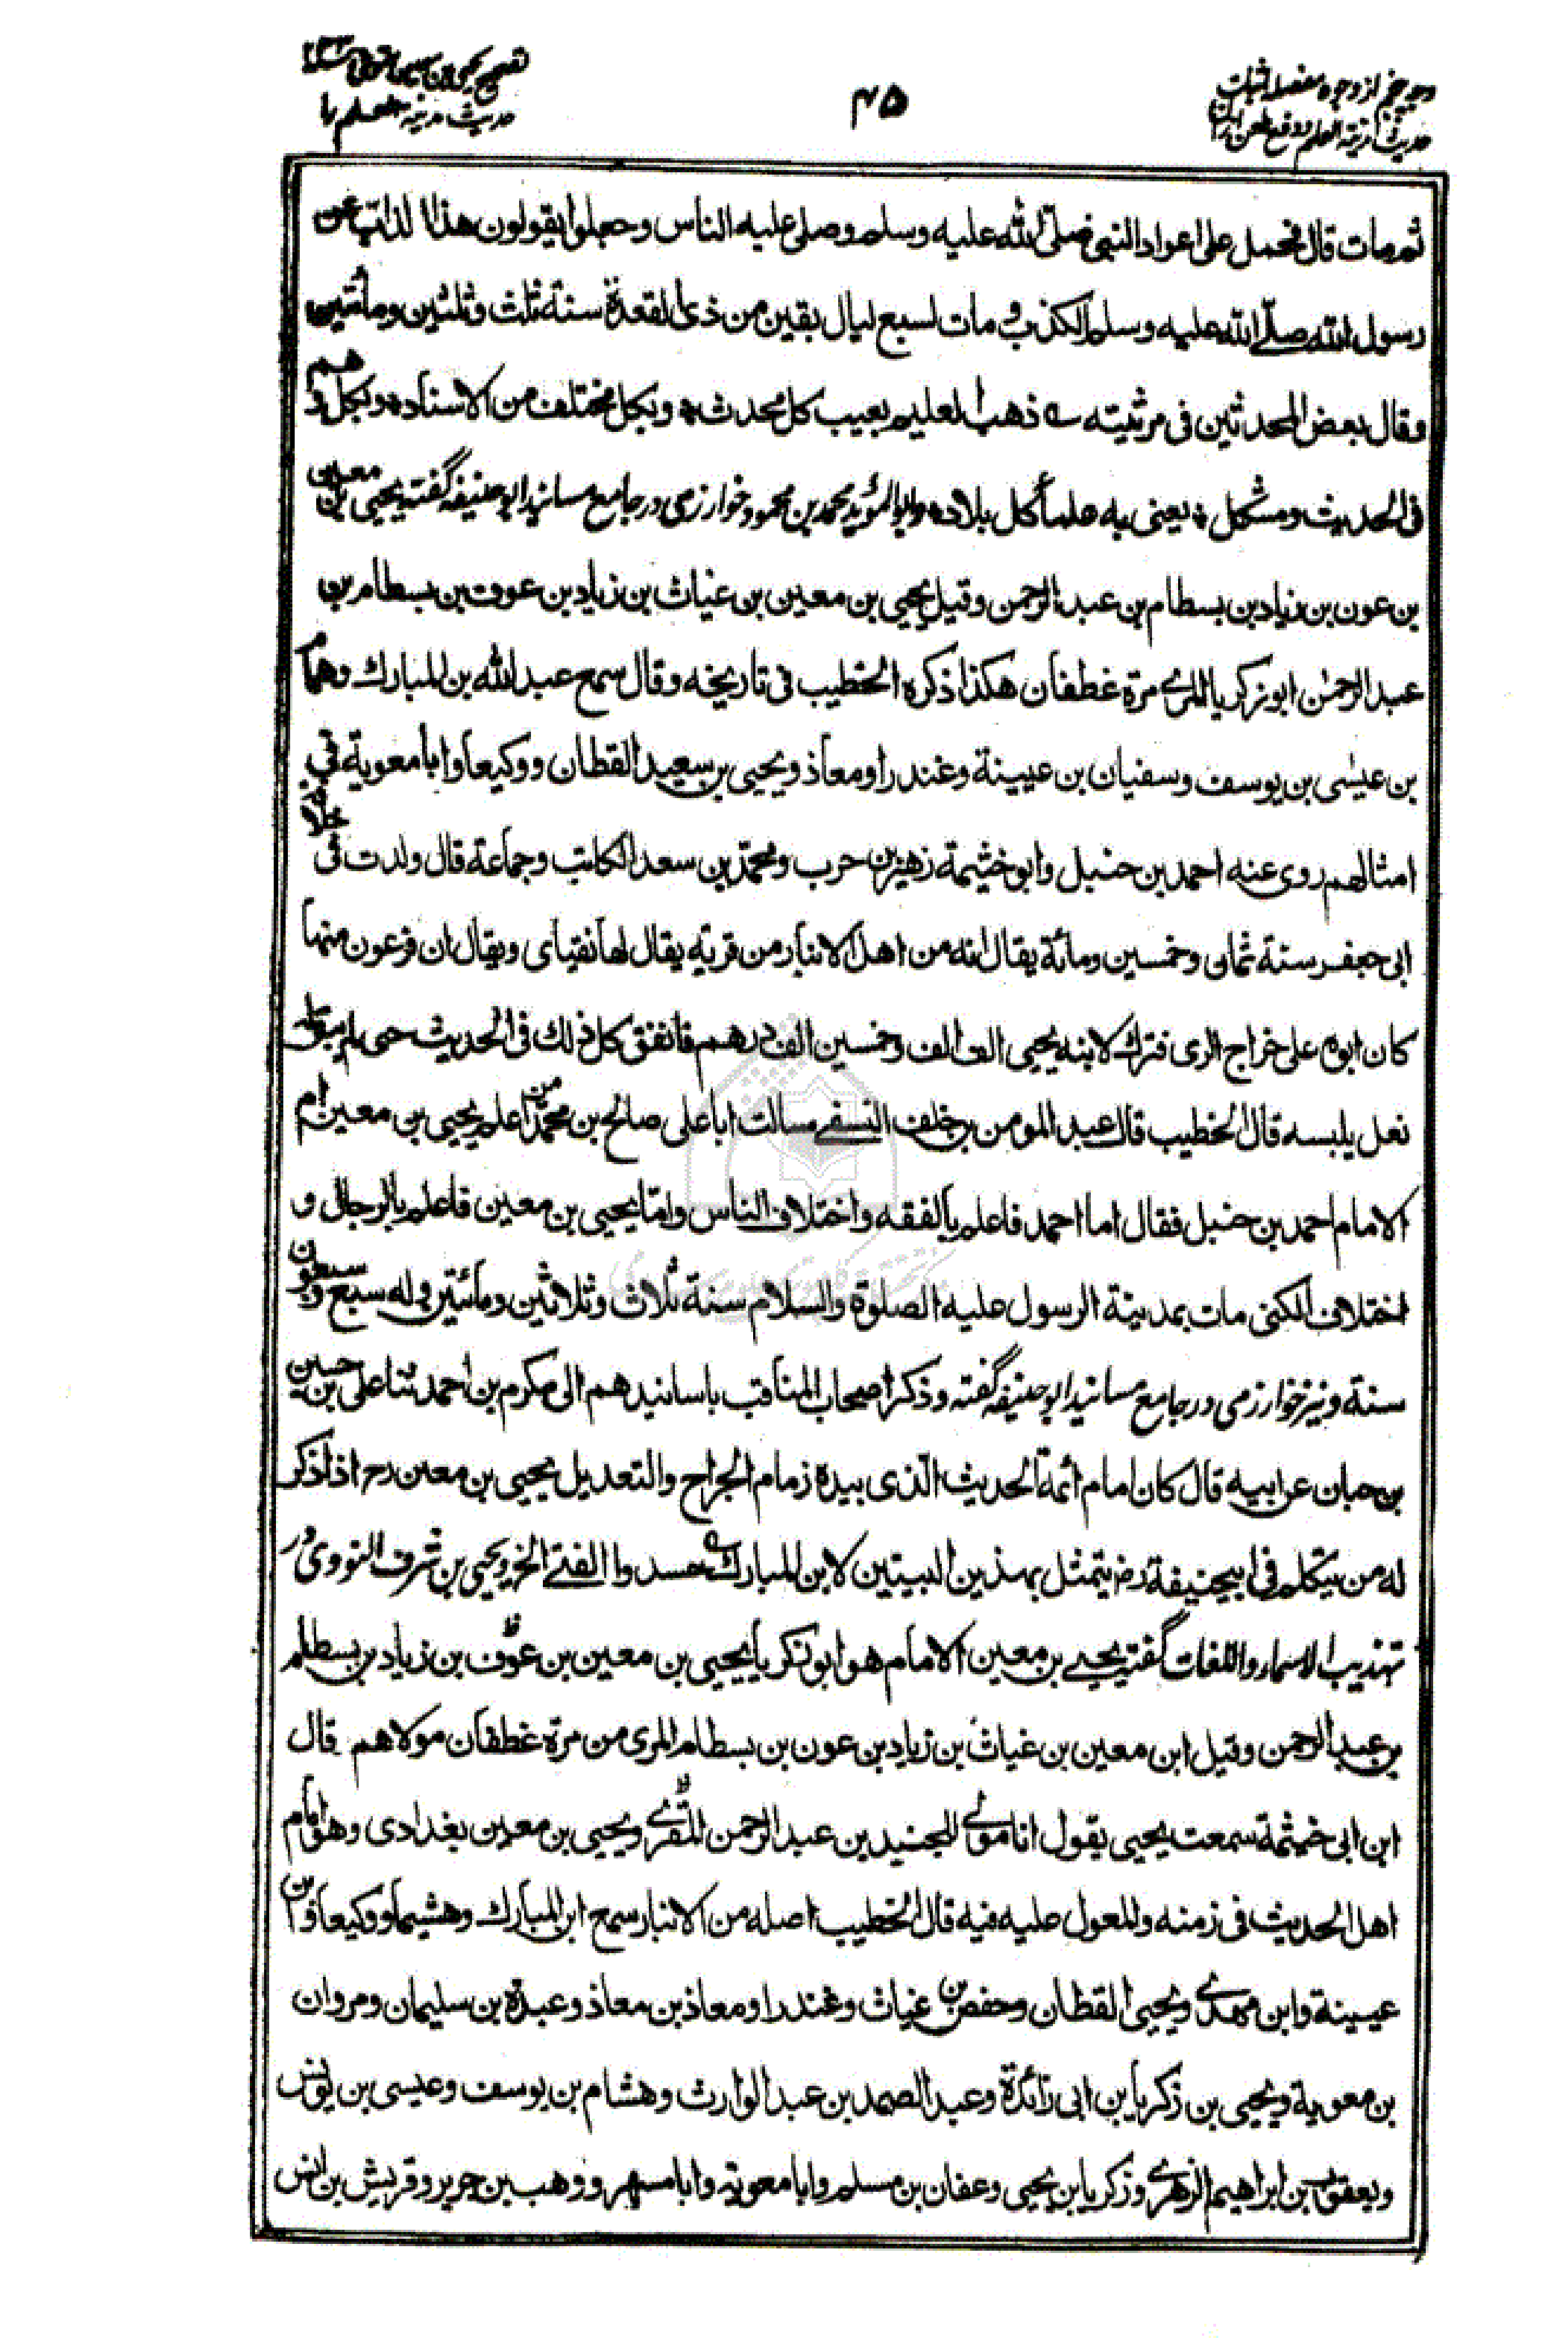 وجه پنجم از وجوه مفصله اثبات
حدیث مدینة العلم و دفع طعن
۴۵
تصحیح یحیی بن معین
حدیث مدینه علم را
ثم مات قال فحمل علی اعواد النبی صلی الله علیه وسلم وصلی علیه الناس وجعلوا یقولون هذا الذاب عن
رسول الله صلی الله علیه وسلم الکذب و مات لسبع لیال بقین من ذی القعدة سنة ثلث وثلثین ومأتین
وقال بعض المحدثین فی مرثیته ذهب العلیم بعیب کل محدث و بکل مختلف من الاسناد و بکل وهم
فی الحدیث ومشکل یعنی به علماء کل بلاد وابو الموید محمد بن محمود خوارزمی در جامع مسانید ابو حنیفه گفته یحیی بن معین
بن عون بن زیاد بن بسطام بن عبد الرحمن وقیل یحیی بن معین بن غیاث بن زیاد بن عون بن بسطام بن
عبد الرحمن ابو زکریا المری مرة غطفان هکذا ذکره الخطیب فی تاریخه وقال سمع عبد الله بن المبارک وهشام
بن عیسی بن یوسف وسفیان بن عیینة وغندرا ومعاذ ویحیی بن سعید القطان ووکیعا وابا معویة فی
امثالهم روی عنه احمد بن حنبل وابو خثیمة زهیر بن حرب ومحمد بن سعد الکاتب وجماعة قال ولدت فی خلافة
ابی جعفر سنة ثمان وخمسین ومائة یقال انه من اهل الانبار من قریة یقال لها نقیای ویقال ان فرعون منها
کان ابوه علی خراج الری فترک لابنه یحیی الف الف وخمسین الف درهم فانفق کل ذلک فی الحدیث حتی لم یبق له
نعل یلبسه قال الخطیب قال عبد المومن بن خلف النسفی سالت ابا علی صالح بن محمد من اعلم یحیی بن معین ام
الامام احمد بن حنبل فقال اما احمد فاعلم بالفقه واختلاف الناس واما یحیی بن معین فاعلم بالرجال و
اختلاف الکنی مات بمدینة الرسول علیه الصلوة والسلام سنة ثلاث وثلاثین ومأئتین وله سبع وسبعون
سنة ونیز خوارزمی در جامع مسانید ابو حنیفه گفته وذکر اصحاب المناقب باسانیدهم الی مکرم بن احمد ثنا علی بن حسین
بن حبان عن ابیه قال کان امام ائمة الحدیث الذی بیده زمام الجراح والتعدیل یحیی بن معین رح اذا ذکر
له من یتکلم فی ابیحنیفة رض یتمثل بهذین البیتین لابن المبارک حسدوا الفتی الخ ویحیی بن شرف النووی در
تهذیب الاسماء واللغات گفته یحیی بن معین الامام هو ابو زکریا یحیی بن معین بن عون بن زیاد بن بسطام
بن عبد الرحمن وقیل ابن معین بن غیاث بن زیاد بن عون بن بسطام المری من مرة غطفان مولاهم قال
ابن ابی خثیمة سمعت یحیی یقول انا مولی للجنید بن عبد الرحمن المری ویحیی بن معین بغدادی وهو امام
اهل الحدیث فی زمنه والمعول علیه فیه قال الخطیب اصله من الانبار سمع ابن المبارک وهشیما ووکیعا وابن
عیینة وابن مهدی ویحیی القطان وحفص بن غیاث وغندرا ومعاذ بن معاذ وعبدة بن سلیمان ومروان
بن معویة ویحیی بن زکریا بن ابی زائدة وعبد الصمد بن عبد الوارث وهشام بن یوسف وعیسی بن یونس
ویعقوب بن ابراهیم الزهری وزکریا بن یحیی وعفان بن مسلم وابا معویه وابا مسهر ووهب بن جریر وقریش بن انس